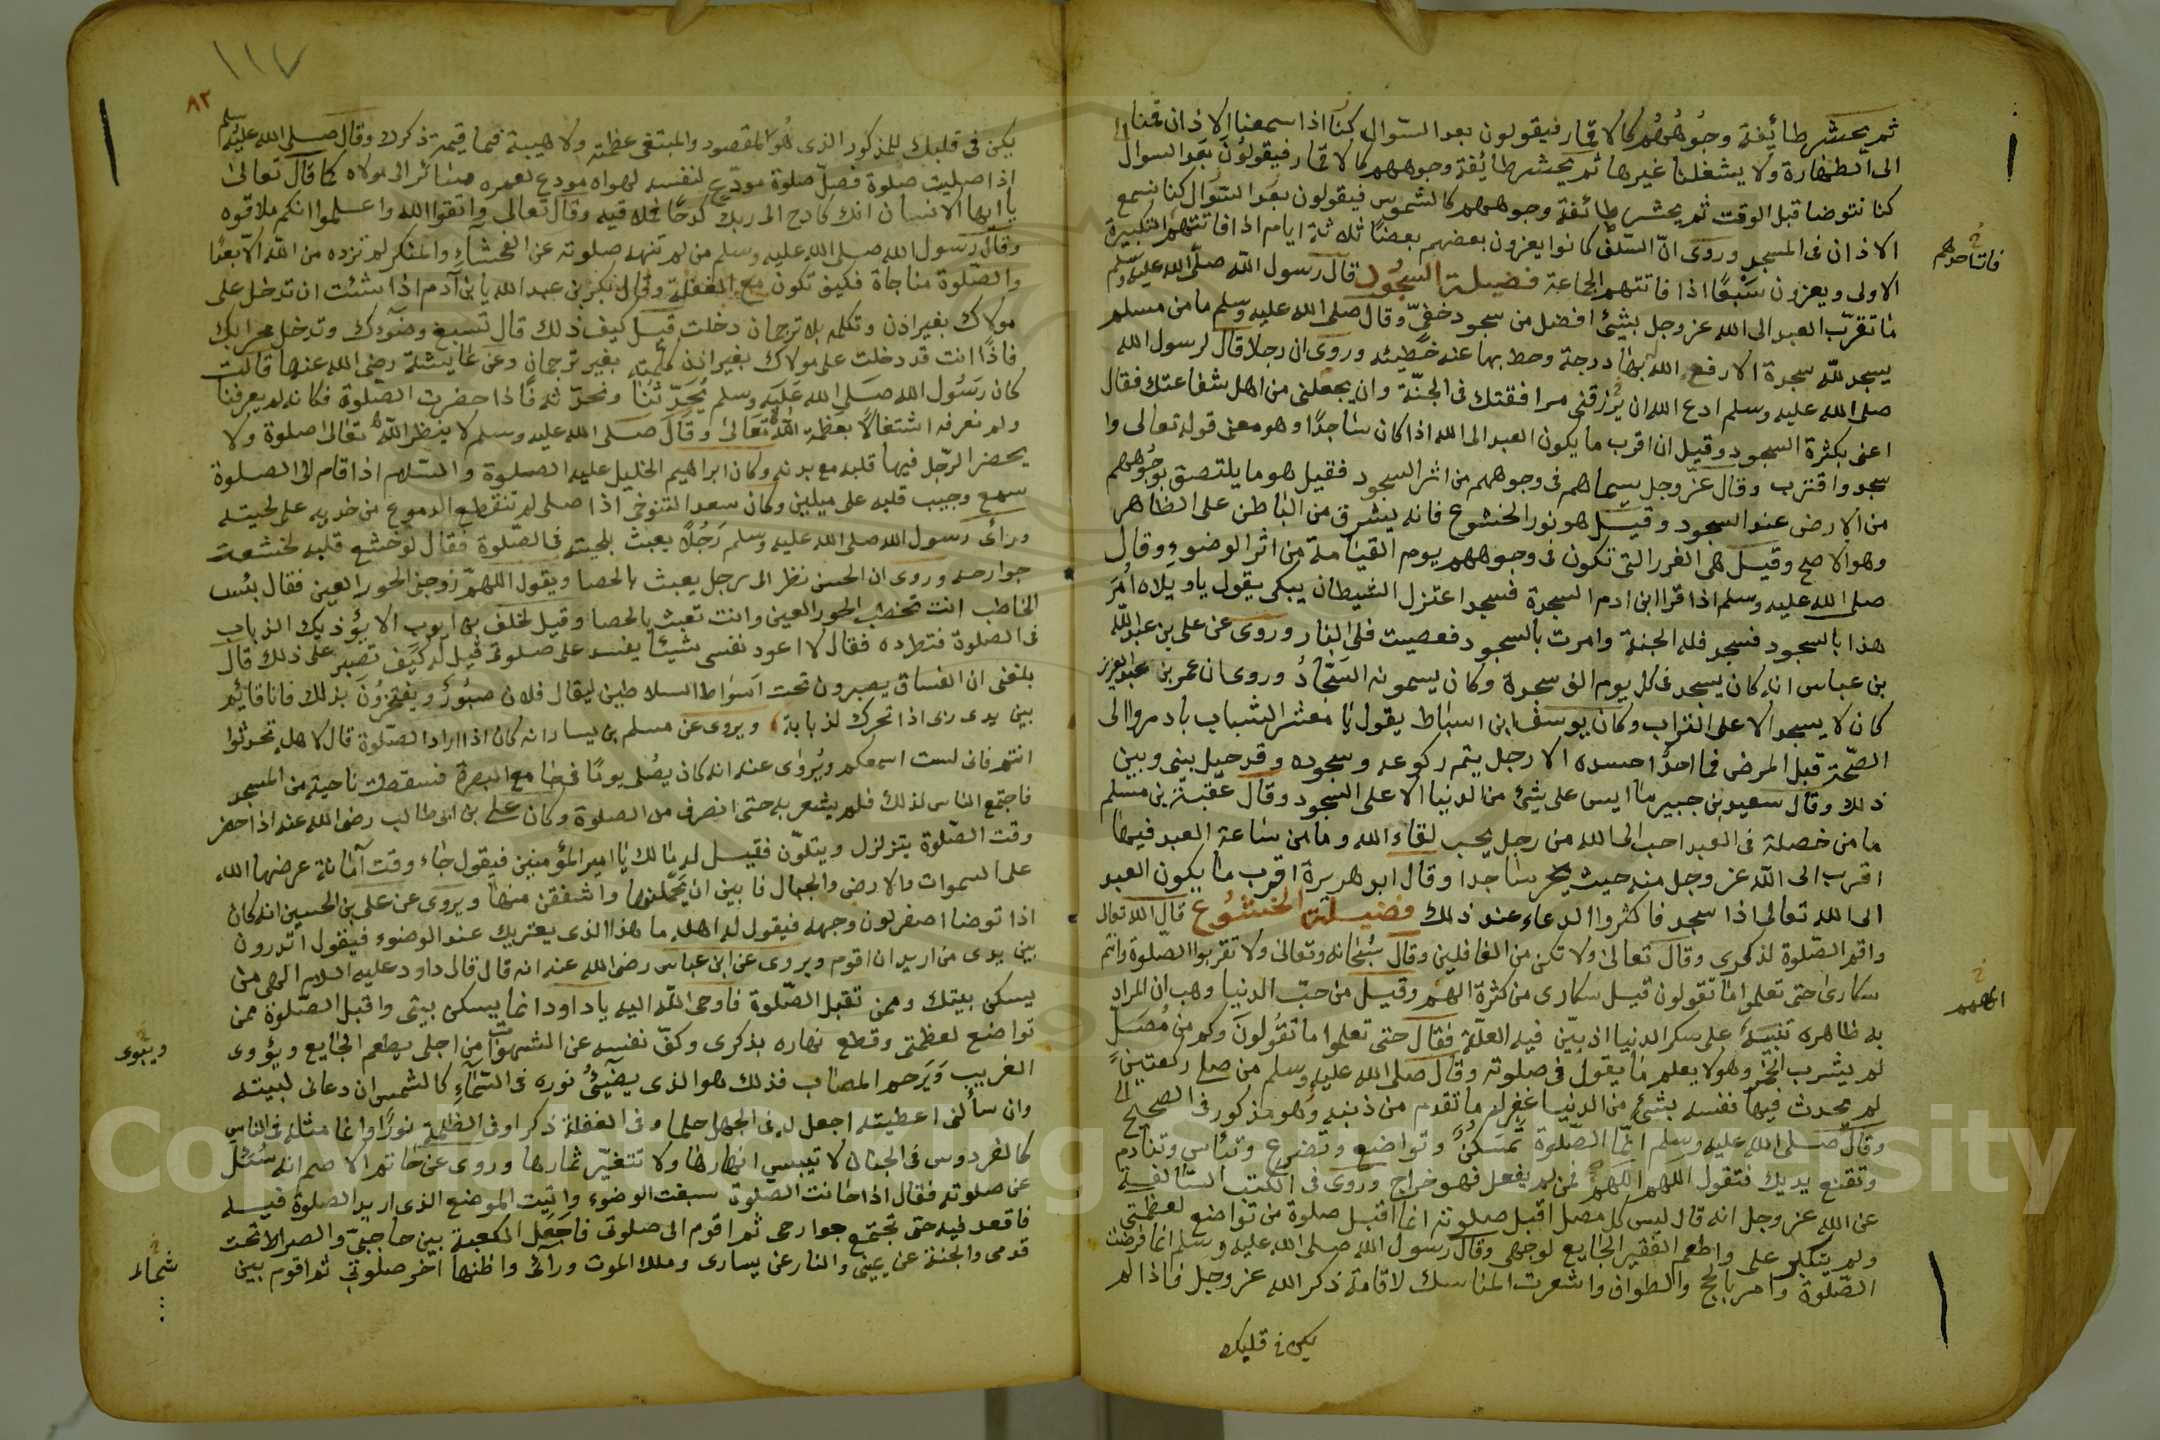 ثم يحشر طائفة وجوههم كالاقمار فيقولون بعد السؤال كنا اذا سمعنا الاذان قمنا
الى الطهارة ولا يشغلنا غيرها ثم يحشر طائفة وجوههم كالاقمار فيقولون بعد السوال
كنا نتوضا قبل الوقت ثم يحشر طائفة وجوههم كالشموس فيقولون بعد السؤال كنا نسمع
الاذان فى المسجد وروى ان السلف كانوا يعزون بعضهم بعضا ثلاثة ايام اذا فاتتهم التكبيرة
الاولى ويعزون سبعا اذا فاتتهم الجماعة فضيلة السجود قال رسول الله صلى الله عليه وسلم
ما تقرب العبد الى الله عز وجل بشئ افضل من سجود خفى وقال صلى الله عليه وسلم ما من مسلم
يسجد لله سجدة الا رفع الله بها درجة وحط بها عنه خطيئه وروى ان رجلا قال لرسول الله
صلى الله عليه وسلم ادع الله ان يرزقنى مرافقتك فى الجنة وان يجعلنى من اهل شفاعتك فقال
اعنى بكثرة السجود وقيل ان اقرب ما يكون العبد الى الله اذا كان ساجدا وهو معنى قوله تعالى وا
سجد واقترب وقال عز وجل سيماهم فى وجوههم من اثر السجود فقيل هو ما يلتصق بوجوههم
من الارض عند السجود وقيل هو نور الخشوع فانه يشرق من الباطن على الظاهر
وهو الاصح وقيل هى الغرر التى تكون فى وجوههم يوم القيامة من اثر الوضوء وقال
صلى الله عليه وسلم اذا قرا ابن ادم السجدة فسجد اعتزل الشيطان يبكى يقول ياويلاه امر
هذا بالسجود فسجد فله الجنة وامرت بالسجود فعصيت فلى النار وروى عن على بن عبد الله
بن عباس انه كان يسجد فى كل يوم الف سجدة وكان يسمونه السجاد وروى ان عمر بن عبد العزيز
كان لا يسجد الا على التراب وكان يوسف ابن اسباط يقول يا معشر الشباب بادروا الى
الصحة قبل المرض فما احد احسده الا رجل يتم ركوعه وسجوده وقد حيل بينى وبين
ذلك وقال سعيد بن جبير ما ايس على شئ من الدنيا الا على السجود وقال عقبة بن مسلم
ما من خصلة فى العبد احب الى الله من رجل يحب لقاء الله وما من ساعة العبد فيها
اقرب الى الله عز وجل منه حيث يخر ساجدا وقال ابو هريرة اقرب ما يكون العبد
الى الله تعالى اذا سجد فاكثروا الدعاء عند ذلك فضيلة الخشوع قال الله تعالى
واقم الصلوة لذكرى وقال تعالى ولا تكن من الغافلين وقال سبحانه وتعالى ولا تقربوا الصلوة وانتم
سكارى حتى تعلموا ما تقولون قيل سكارى من كثرة الهم وقيل من حب الدنيا وهب ان المراد
به ظاهره تنبيه على سكر الدنيا اذ بين فيه العلة فقال حتى تعلموا ما تقولون وكم من مصل
لم يشرب الخمر وهو لا يعلم ما يقول فى صلوته وقال صلى الله عليه وسلم من صلى ركعتين
لم يحدث فيها نفسه بشئ من الدنيا غفر له ما تقدم من ذنبه وهو مذكور فى الصحيح
وقال صلى الله عليه وسلم انما الصلوة تمسكن وتواضع وتضرع وتبأس وتنادم
وتقنع يديك فتقول اللهم اللهم فمن لم يفعل فهو خراج وروى فى الكتب السالفة
عن الله عز وجل انه قال ليس كل مصل اقبل صلوته انما اقبل صلوة من تواضع لعظمتى
ولم يتكبر على واطعم الفقير الجايع لوجهى وقال رسول الله صلى الله عليه وسلم انما فرضت
الصلوة وامر بالحج والطواف واشعرت المناسك لاقامة ذكر الله عز وجل فاذا لم
يكن فى قلبك
اللهم
١١٧
٨٢
يكن فى قلبك للمذكور الذى هو المقصود والمبتغى عظمة ولا هيبة فما قيمة ذكرك وقال صلى الله عليه وسلم
اذا صليت صلوة فصل صلوة مودع لنفسه لهواه مودع لعمره سائر الى مولاه كما قال تعالى
يا ايها الانسان انك كادح الى ربك كدحا فملاقيه وقال تعالى واتقوا الله واعلموا انكم ملاقوه
وقال رسول الله صلى الله عليه وسلم من لم تنهه صلوته عن الفحشاء والمنكر لم تزده من الله الا بعدا
والصلوة مناجاة فكيف تكون مع الغفلة وقال بكر بن عبد الله يا بن آدم اذا شئت ان تدخل على
مولاك بغير اذن وتكلمه بلا ترجمان دخلت قيل كيف ذلك قال تسبغ وضوءك وتدخل محرابك
فاذا انت قد دخلت على مولاك بغير اذن كلمته بغير ترجمان وعن عايشة رضى الله عنها قالت
كان رسول الله صلى الله عليه وسلم يحدثنا ونحدثه فاذا حضرت الصلوة فكانه لم يعرفنا
ولم نعرفه اشتغالا بعظمة الله تعالى وقال صلى الله عليه وسلم لا ينظر الله تعالى صلوة ولا
يحضر الرجل فيها قلبه مع بدنه وكان ابراهيم الخليل عليه الصلوة والسلام اذا قام الى الصلوة
سمع وجيب قلبه على ميلين وكان سعد التنوخى اذا صلى لم تنقطع الدموع من خديه على لحيته
وراى رسول الله صلى الله عليه وسلم رجلا يعبث بلحيته فى الصلوة فقال لو خشع قلبه لخشعت
جوارحه وروى ان الحسن نظر الى رجل يعبث بالحصا ويقول اللهم زوجنى الحور العين فقال بئس
الخاطب انت تخطب الحور العين وانت تعبث بالحصا وقيل لخلف بن ايوب الا يؤذيك الذباب
فى الصلوة فتطرده فقال لا اعود نفسى شيئا يفسد على صلوتى قيل له كيف تصبر على ذلك قال
بلغنى ان الفساق يصبرون تحت اسواط السلاطين ليقال فلان صبور ويفتخرون بذلك فانا قايم
بين يدى ربى اذا تحرك لذبابة ويروى عن مسلم بن يسار انه كان اذا اراد الصلوة قال لاهله تحدثوا
انتم فانى لست اسمعكم ويروى عنه انه كان يصلى يوما فى جامع البصرة فسقطت ناحية من المسجد
فاجتمع الناس لذلك فلم يشعر به حتى انصرف من الصلوة وكان على بن ابى طالب رضى الله عنه اذا حضر
وقت الصلوة يتزلزل ويتلون فقيل له مالك يا امير المؤمنين فيقول جاء وقت امانة عرضها الله
على السموات والارض والجبال فابين ان يحملنها واشفقن منها ويروى عن على بن الحسين انه كان
اذا توضا اصفر لون وجهه فيقول له اهله ما هذا الذى يعتريك عند الوضوء فيقول اتدرون
بين يدى من اريد ان اقوم ويروى عن ابن عباس رضى الله عنه انه قال قال داود عليه السلام الهى من
يسكن بيتك وممن تقبل الصلوة فاوحى الله اليه ياداود انما يسكن بيتى واقبل الصلوة ممن
تواضع لعظمتى وقطع نهاره بذكرى وكف نفسه عن الشهوات من اجلى يطعم الجايع ويؤوى
الغريب ويرحم المصاب فذلك هو الذى يضيئ نوره فى السماء كالشمس ان دعانى لبيته
وان سألنى اعطيته اجعل له فى الجهل حلما وفى الغفلة ذكرا وفى الظلمة نورا وانما مثله فى الناس
كالفردوس فى الجنان لا تيبس انهارها ولا تتغير ثمارها وروى عن حاتم الاصم انه سئل
عن صلوته فقال اذا حانت الصلوة سبغت الوضوء واتيت الموضع الذى اريد الصلوة فيه
فاقعد فيه حتى تجتمع جوارحى ثم اقوم الى صلوتى فاجعل الكعبة بين حاجبى والصراط تحت
قدمى والجنة عن يمينى والنار عن يسارى وملك الموت ورآئى واظنها آخر صلوتى ثم اقوم بين
شماء